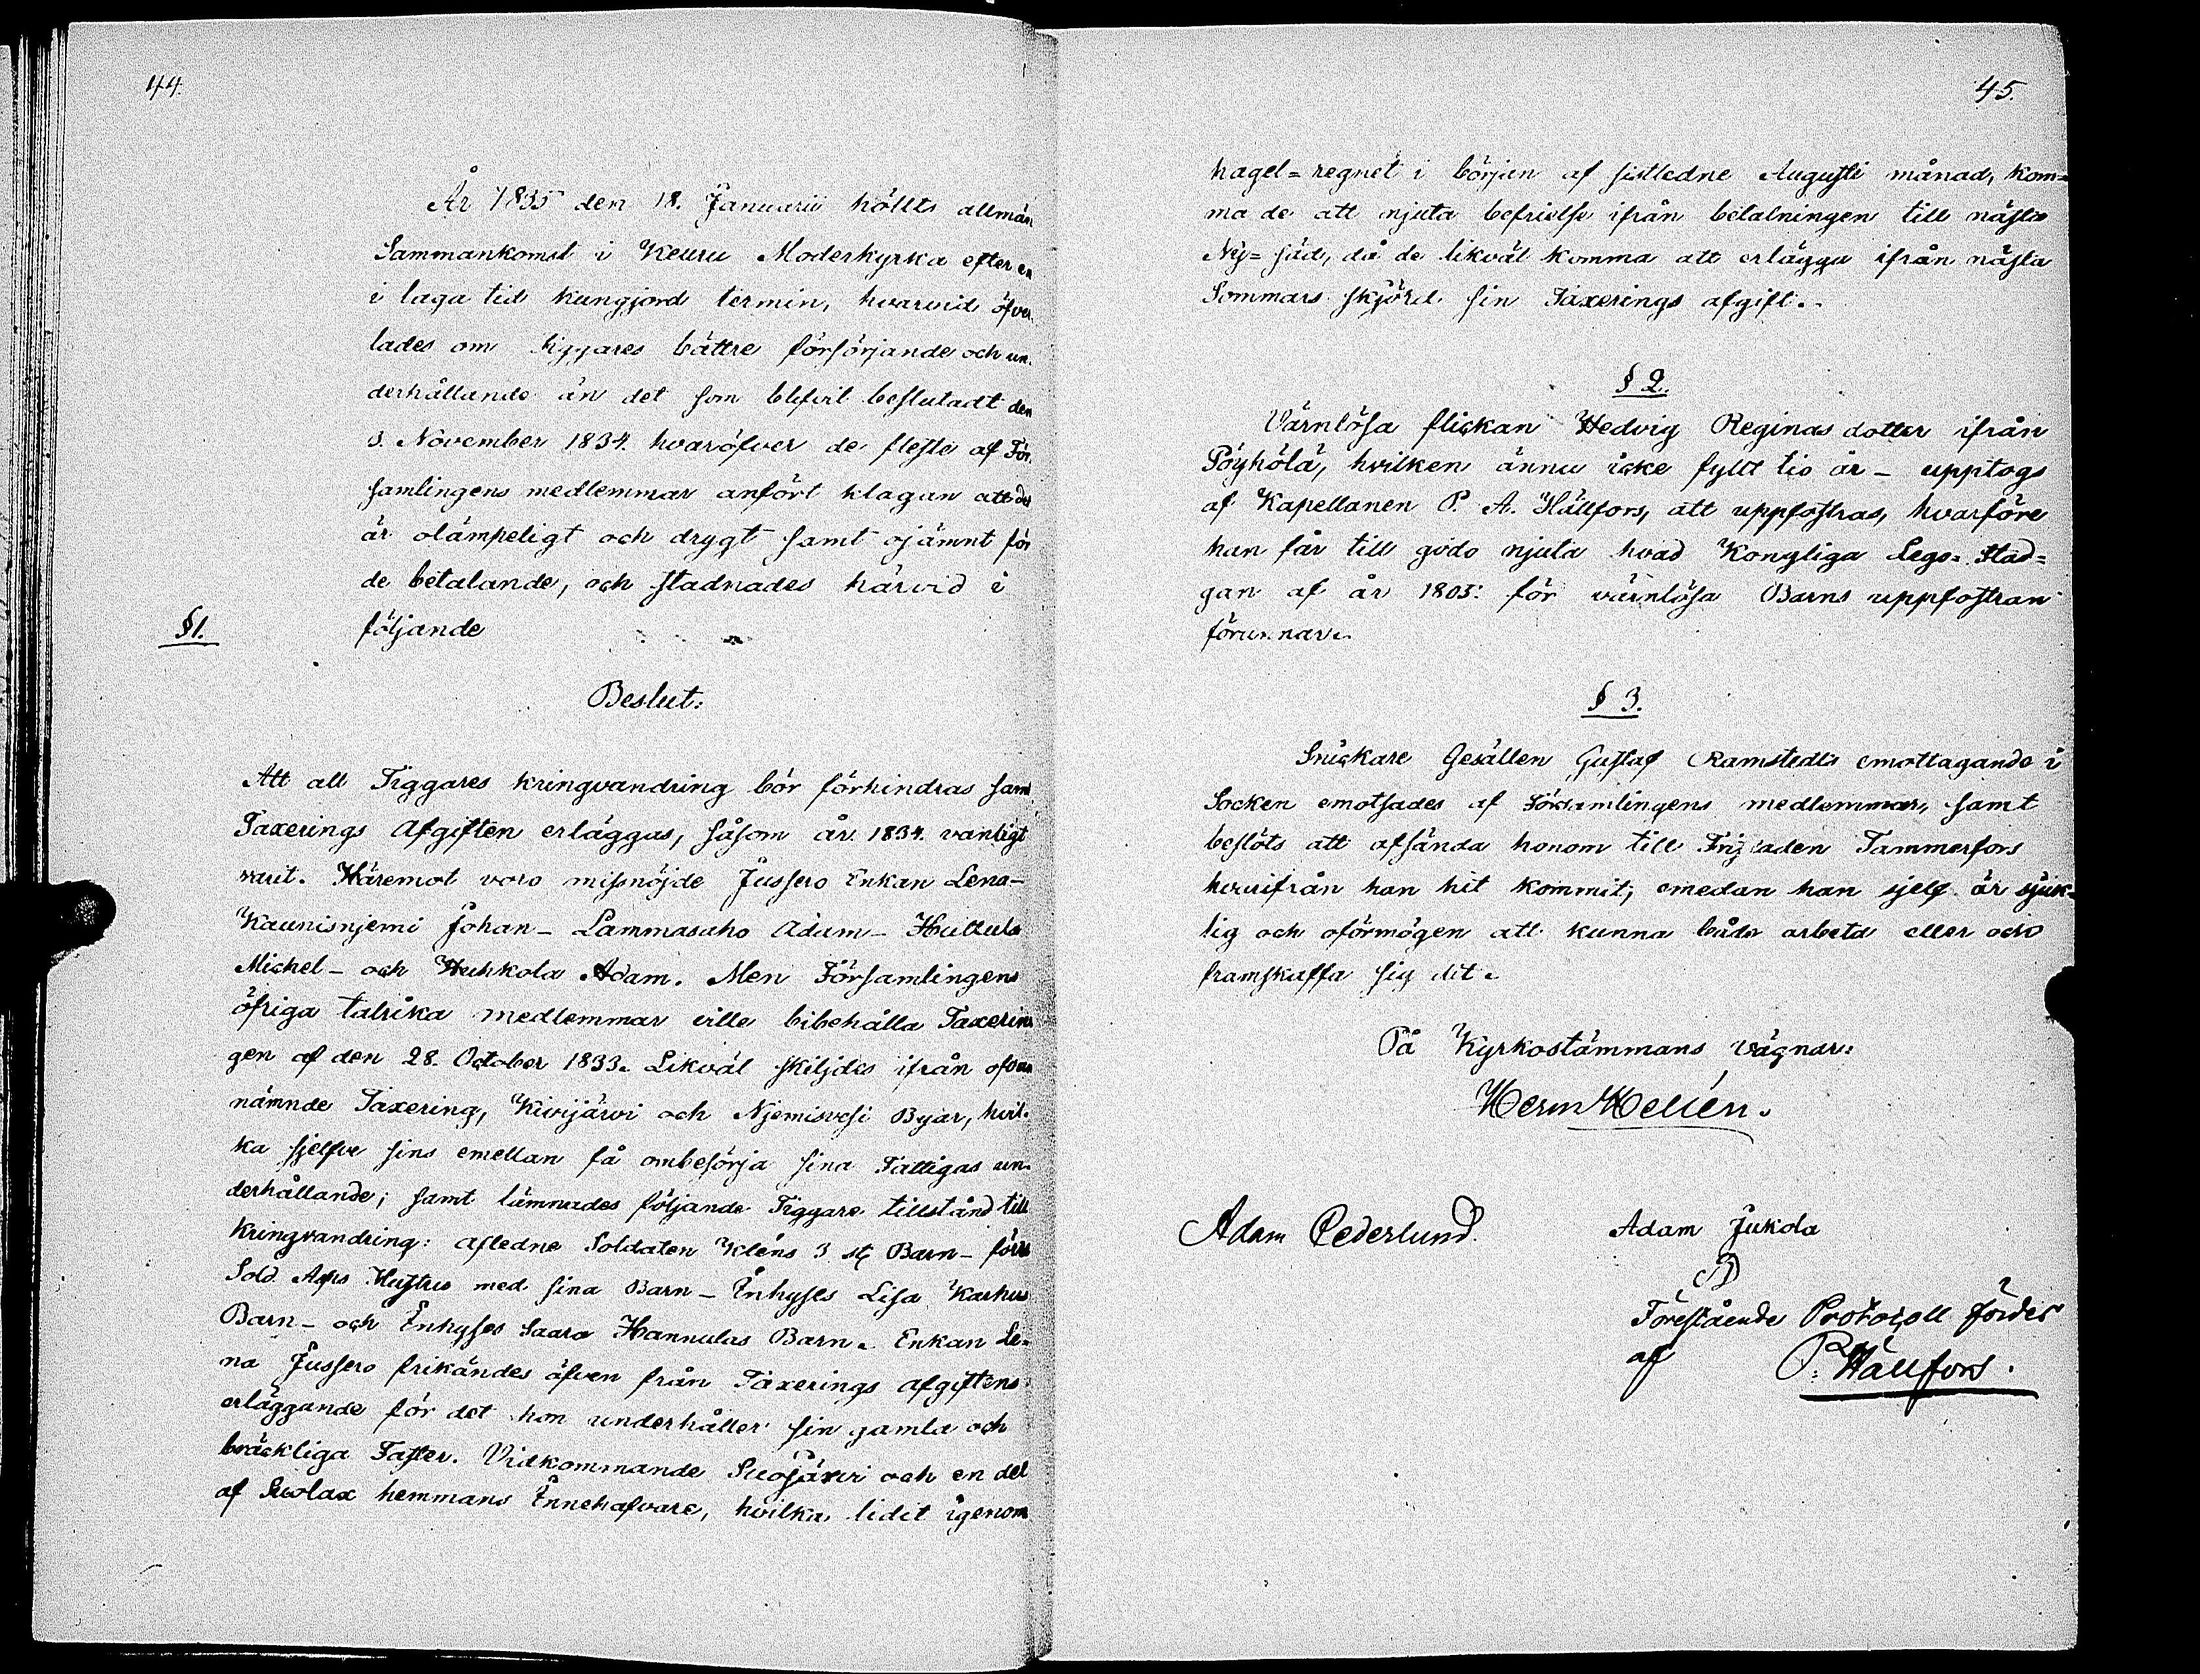 44.
År 1835 den 18. Januarii höllts allmän
Sammankomst i Keuru Moderkyrka efter en
i laga tid kungjord termin, hvarvid öfver-
lades om Tiggares bättre försörjande och un-
derhållande än det som blifvit beslutadt den
3. November 1834. hvaröfver de fleste af För-
samlingens medlemmar anfört klagan att det
är olämpeligt och drygt samt ojämnt för
de betalande, och stadnades härvid i
§1. följande
Beslut:
Att all Tiggares kringvandring bör förhindras samt
Taxerings Afgiften erläggas, såsom år 1834. vanligt
varit. Häremot voro missnöjde Jussero Enkan Lena-
Kaunisnjemi Johan- Lammasaho Adam- Huttula
Michel- och Huhkola Adam. Men Församlingens
öfriga talrika medlemmar ville bibehålla Taxerin-
gen af den 28. October 1833. Likväl skiljdes ifrån ofvan
nämnde Taxering, Kivijärvi och Njemisvesi Byar, hvil-
ka sjelfve sins emellan få ombesörja sina Fattigas un-
derhållande; samt lämnades följande Tiggare tillstånd till
kringvandring: afledne Soldaten Kléns 3 st Barn- förre
Sold. Hustru med sina Barn- Inhyses Lisa Karhus
Barn- och Inhyses Saara Hannulas Barn. Enkan Le-
na Jussero frikändes äfven från Taxerings afgiftens
erläggande för det hon underhåller sin gamla och
bräckliga Faster. Vidkommande Suojärvi och en del
af Suolax hemmans Innehafvare, hvilka lidit igenom
45.
hagel=regnet i början af sistledne Augusti månad, kom=
ma de att njuta befrielse ifrån betalningen till nästa
Ny=säd, då de likväl komma att erlägga ifrån nästa
Sommars skjörd sin Taxerings afgift.
§ 2.
Värnlösa flickan Hedvig Reginas dotter ifrån
Pöyhölä, hvilken ännu icke fyllt tio år - upptogs
af Kapellanen P. A. Hällfors, att uppfostras, hvarföre
han får till godo njuta hvad Kongliga Lego=Stad=
gan af år 1805: för värnlösa Barns uppfostran
förunnar.
§ 3.
Snickare Gesällen Gustaf Ramstedts emottagande i
Socken emotsades af Församlingens medlemmar, samt
beslöts att afsända honom till Fristaden Tammerfors
hvarifrån han hit kommit; emedan han sjelf är sjuk-
lig och oförmögen att kunna både arbeta eller ock
framskaffa sig dit.
På Kyrkostämmans vägnar:
Herm Hellén.
Adam Cederlund. Adam Jukola
Förestående Protocoll fördes
af P. Hällfors.